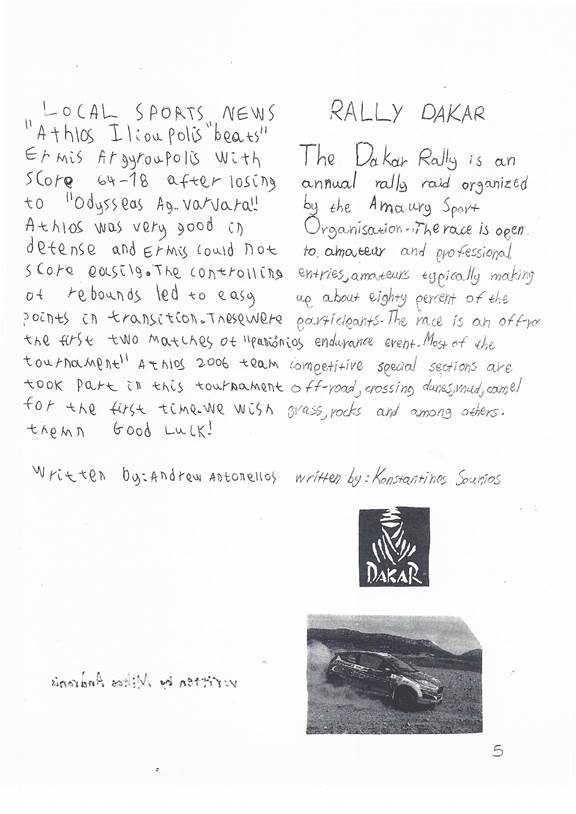 LOCAL SPORTS NEWS
"Athlos Ilioupolis "beats"
Ermis Argyroupolis with
score 64-18 after losing
to "Odysseas Ag. varvara!!
Athlos was very good in
defense and Ermis could not
score easily. The controlling
of rebounds led to easy
points in transition. These were
the first two matches of "panionios
tournament" Athlos 2006 team
took part in this tournament
for the first time. We wish
themn Good Luck!
Written by: Andrew Antonellos
RALLY DAKAR
The Dakar Rally is an
annual rally raid organized
by the Amaury Sport
Organisation.. The race is open
to, amateur and professional
entries, amateurs typically making
up about eighty percent of the
participants. The race is an off-
endurance event. Most of the
competitive special sections are
off-road, crossing dunes, mud, camel
grass, rocks and among others.
written by: Konstantinos Sounios
DAKAR
written by
5